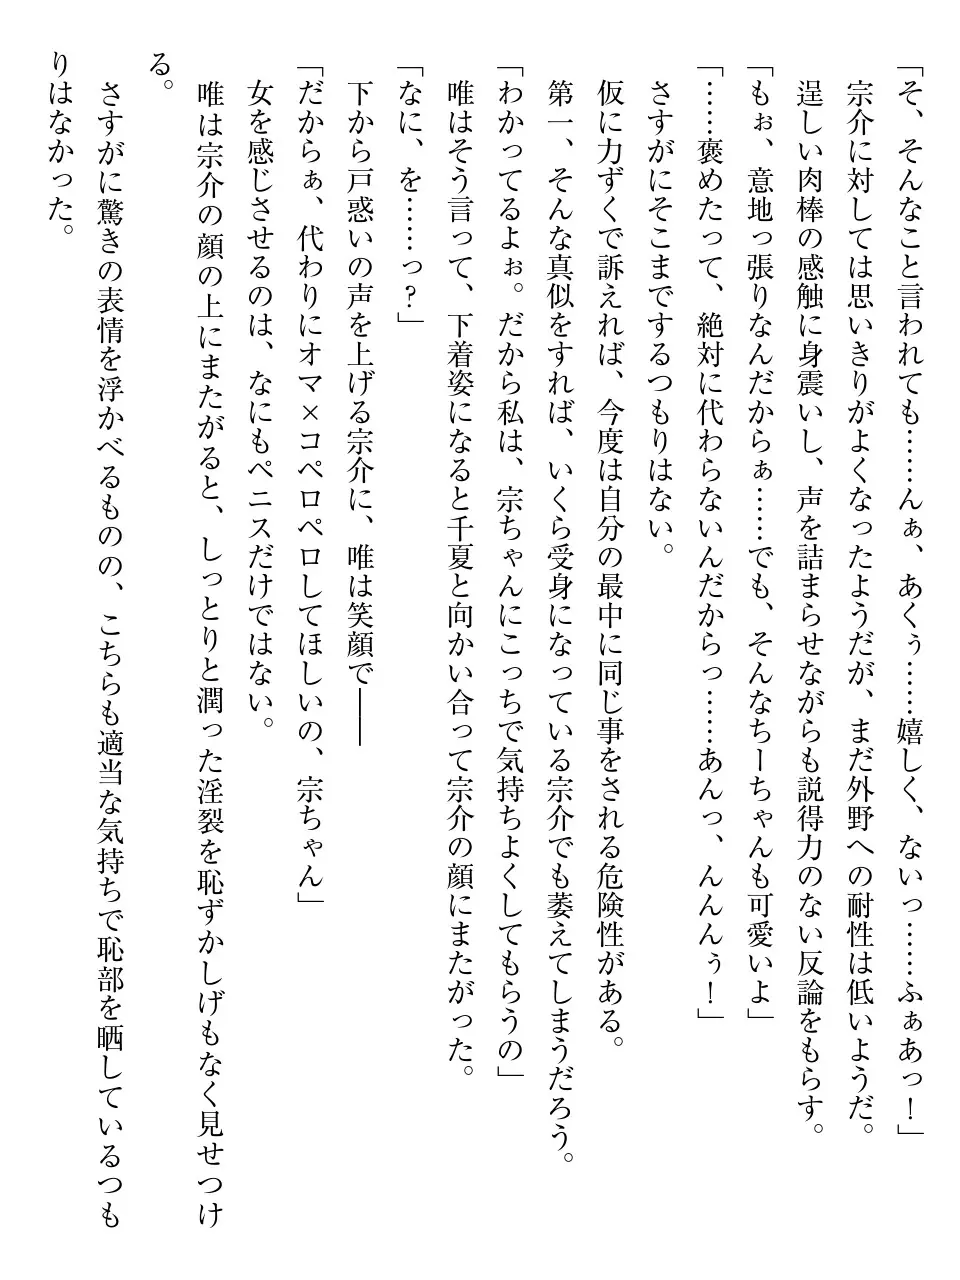 「そ、そんなこと言われても……んぁ、あくぅ……嬉しく、ないっ……ふぁあっ！」
　宗介に対しては思いきりがよくなったようだが、まだ外野への耐性は低いようだ。
　逞しい肉棒の感触に身震いし、声を詰まらせながらも説得力のない反論をもらす。
「もぉ、意地っ張りなんだからぁ……でも、そんなちーちゃんも可愛いよ」
「……褒めたって、絶対に代わらないんだからっ……あんっ、んんんぅ！」
　さすがにそこまでするつもりはない。
　仮に力ずくで訴えれば、今度は自分の最中に同じ事をされる危険性がある。
　第一、そんな真似をすれば、いくら受身になっている宗介でも萎えてしまうだろう。
「わかってるよぉ。だから私は、宗ちゃんにこっちで気持ちよくしてもらうの」
　唯はそう言って、下着姿になると千夏と向かい合って宗介の顔にまたがった。
「なに、を……っ？」
　下から戸惑いの声を上げる宗介に、唯は笑顔で――
「だからぁ、代わりにオマ×コペロペロしてほしいの、宗ちゃん」
　女を感じさせるのは、なにもペニスだけではない。
　唯は宗介の顔の上にまたがると、しっとりと潤った淫裂を恥ずかしげもなく見せつけ
る。
　さすがに驚きの表情を浮かべるものの、こちらも適当な気持ちで恥部を晒しているつも
りはなかった。